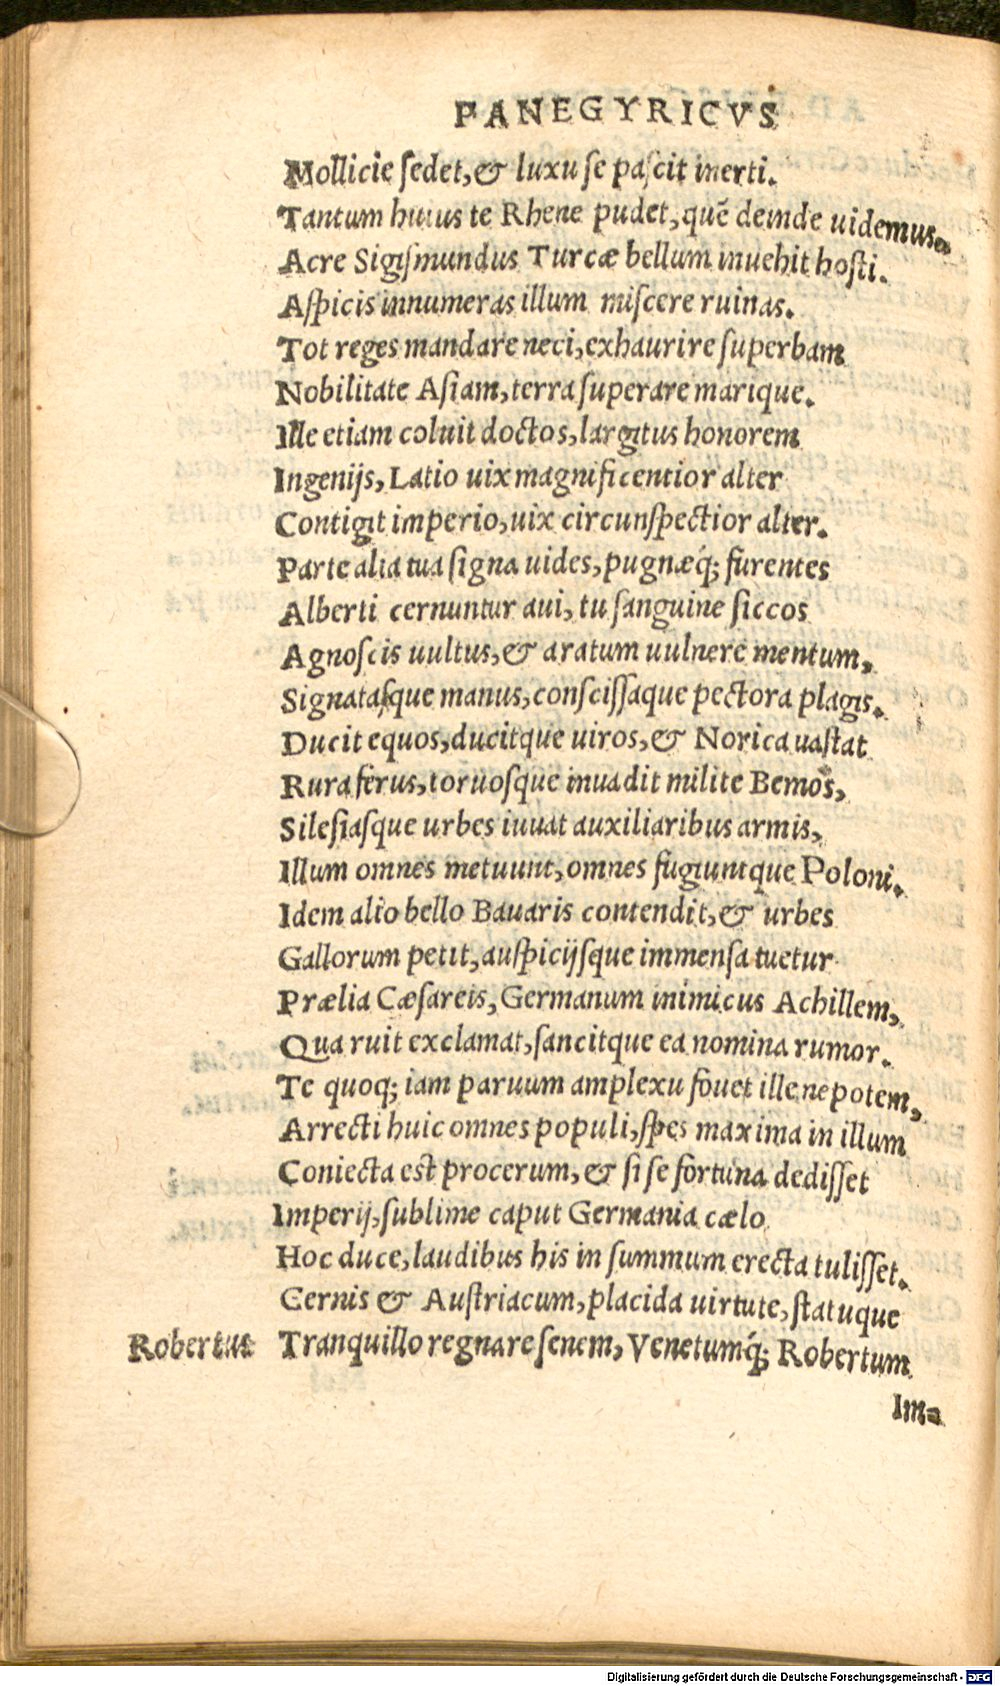 PANEGYRICVS
Mollicie sedet, & luxu se pascit inerti.
Tantum huius te Rhene pudet, quē deinde uidemus.
Acre Sigismundus Turcæ bellum inuehit hosti.
Aspicis innumeras illum miscere ruinas.
Tot reges mandare neci, exhaurire superbam
Nobilitate Asiam, terra superare marique.
Ille etiam coluit doctos, largitus honorem
Ingenijs, Latio uix magnificentior alter
Contigit imperio, uix circunspectior alter.
Parte alia tua signa uides, pugnæq́; furentes
Alberti cernuntur aui, tu sanguine siccos
Agnoscis uultus, & aratum uulnere mentum,
Signatasque manus, conscissaque pectora plagis.
Ducit equos, ducitque uiros, & Norica uastat
Rura ferus, toruosque inuadit milite Bemos,
Silesiasque urbes iuuat auxiliaribus armis,
Illum omnes metuunt, omnes fugiuntque Poloni.
Idem alio bello Bauaris contendit, & urbes
Gallorum petit, auspicijsque immensa tuetur
Prælia Cæsareis, Germanum inimicus Achillem,
Qua ruit exclamat, sancitque ea nomina rumor.
Te quoq; iam paruum amplexu fouet ille nepotem,
Arrecti huic omnes populi, spes maxima in illum
Coniecta est procerum, & si se fortuna dedisset
Imperij, sublime caput Germania cælo
Hoc duce, laudibus his in summum erecta tulisset.
Cernis & Austriacum, placida uirtute, statuque
Robertus Tranquillo regnare senem, Venetumq́; Robertum
Im-
Digitalisierung gefördert durch die Deutsche Forschungsgemeinschaft - DFG